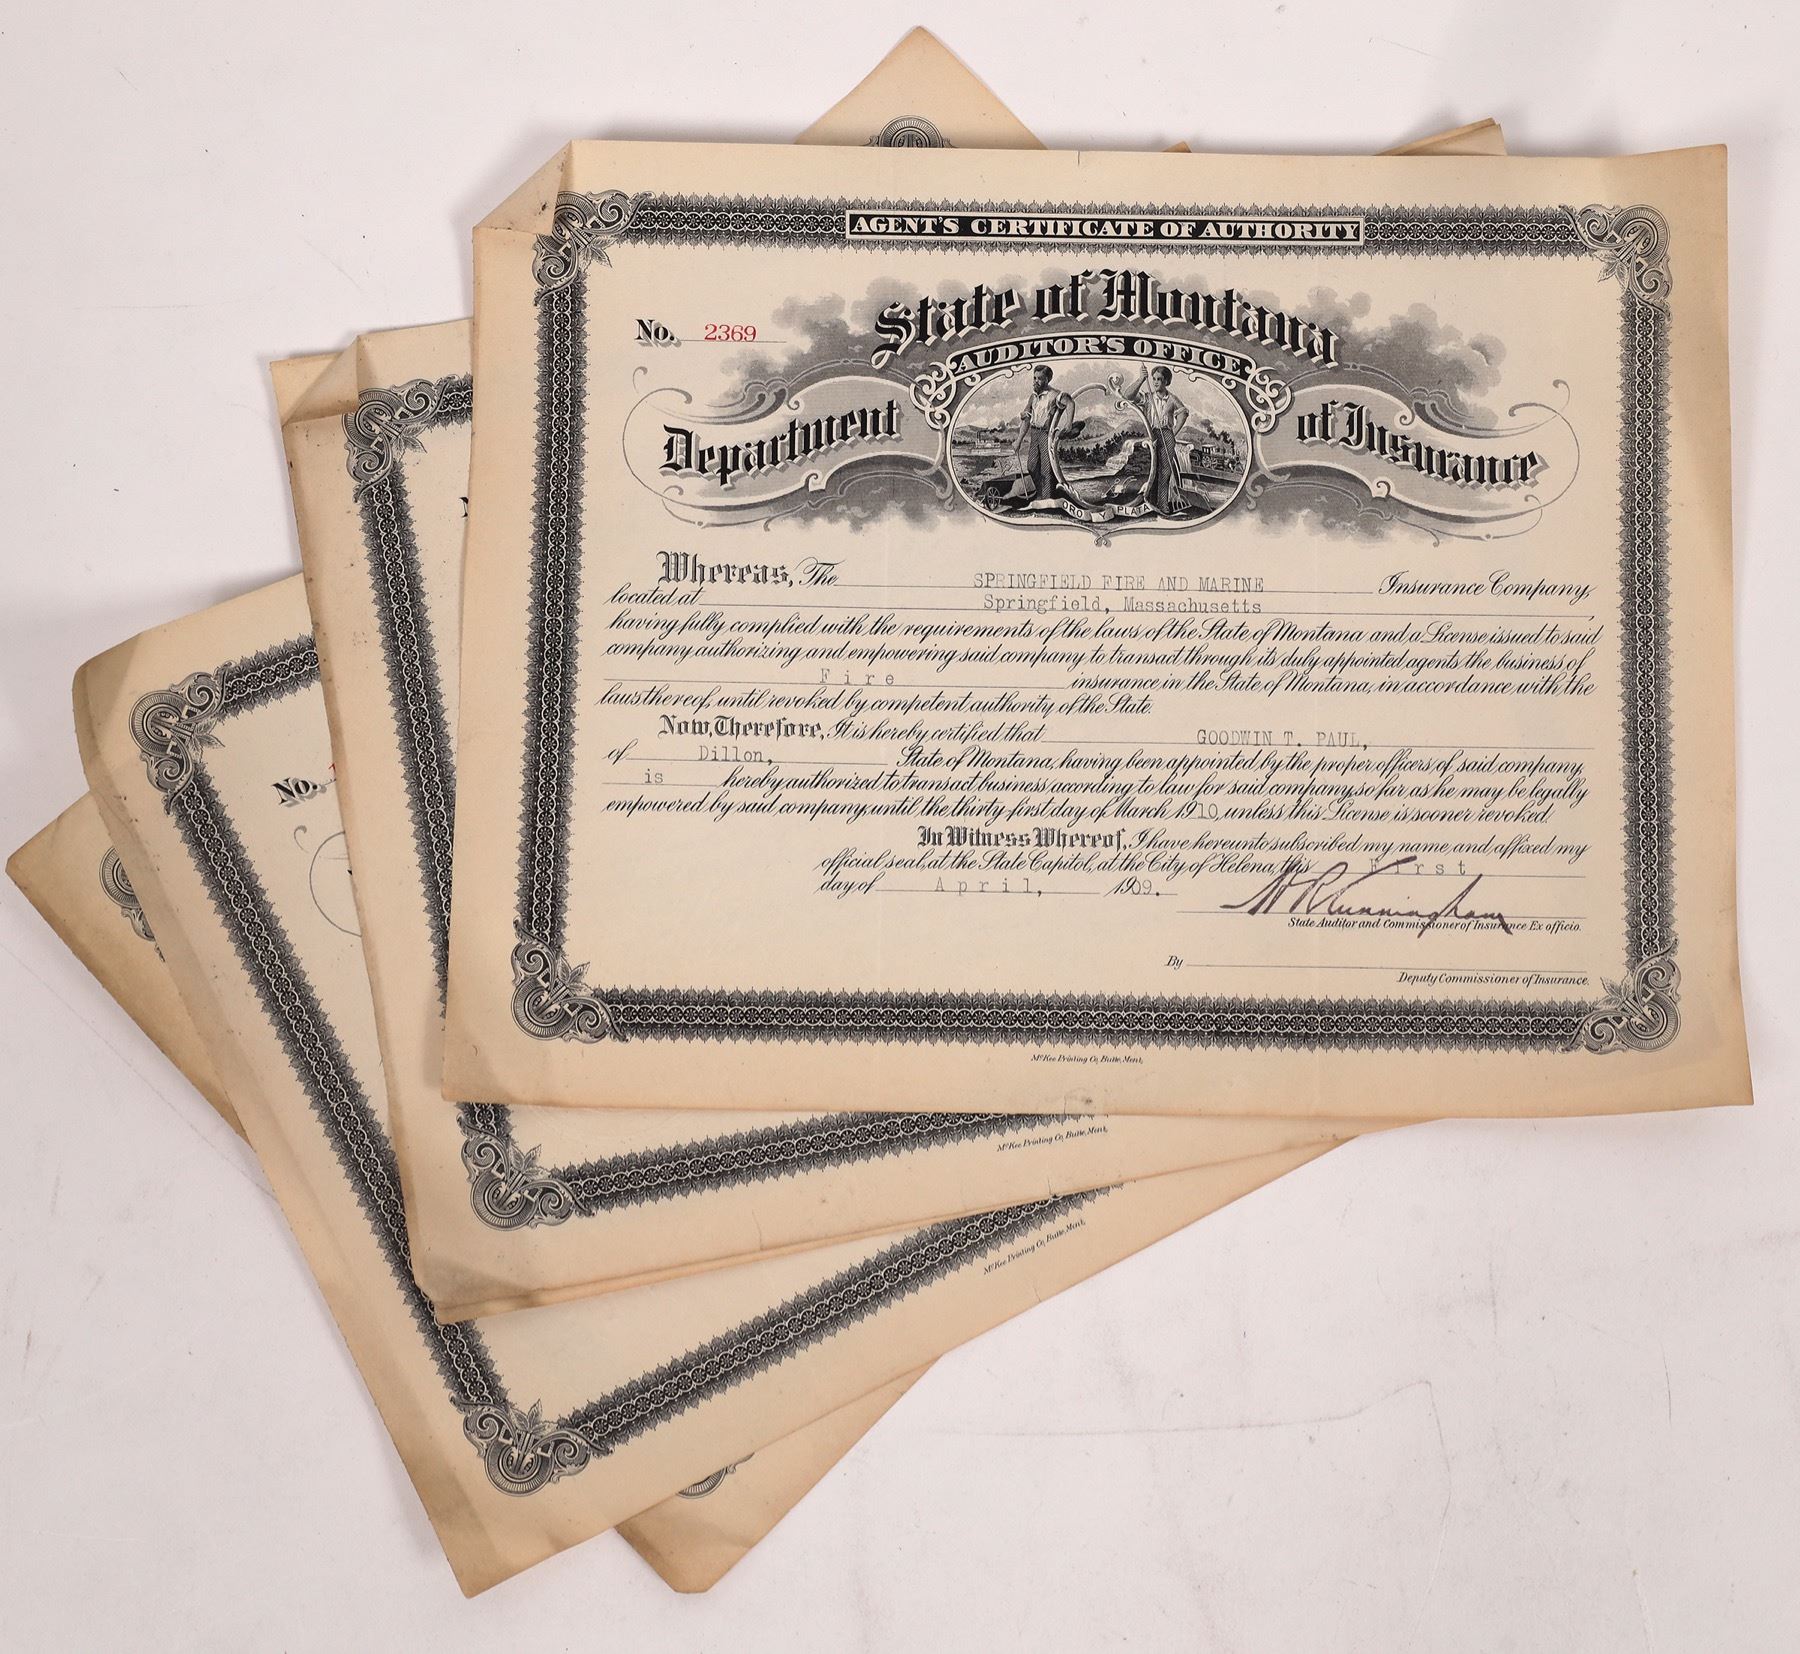 AGENT'S CERTIFICATE OF AUTHORITY
No. 2369
State of Montana
AUDITOR'S OFFICE
Department of Insurance
ORO Y PLATA
Whereas, The SPRINGFIELD FIRE AND MARINE Insurance Company,
located at Springfield, Massachusetts,
having fully complied with the requirements of the laws of the State of Montana and a License issued to said
company authorizing and empowering said company to transact through its duly appointed agents the business of
Fire insurance in the State of Montana, in accordance with the
laws thereof, until revoked by competent authority of the State.
Now, Therefore, It is hereby certified that GOODWIN T. PAUL,
of Dillon, State of Montana, having been appointed by the proper officers of said company,
is hereby authorized to transact business according to law for said company, so far as he may be legally
empowered by said company, until the thirty-first day of March 1910, unless this License is sooner revoked.
In Witness Whereof, I have hereunto subscribed my name, and affixed my
official seal, at the State Capitol, at the City of Helena, this First
day of April, 1909.
H R Cunningham
State Auditor and Commissioner of Insurance Ex officio.
By
Deputy Commissioner of Insurance.
McKee Printing Co, Butte, Mont.
McKee Printing Co, Butte, Mont.
McKee Printing Co, Butte, Mont.
No.